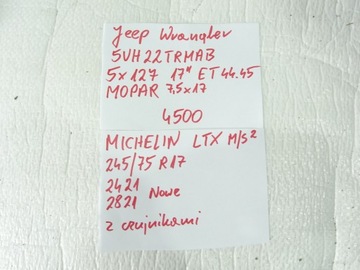 Jeep Wrangler
5VH22TRMAB
5x127 17" ET 44.45
MOPAR 7,5x17
4500
MICHELIN LTX M/S²
245/75 R17
2421
2821 Nowe
z czujnikami